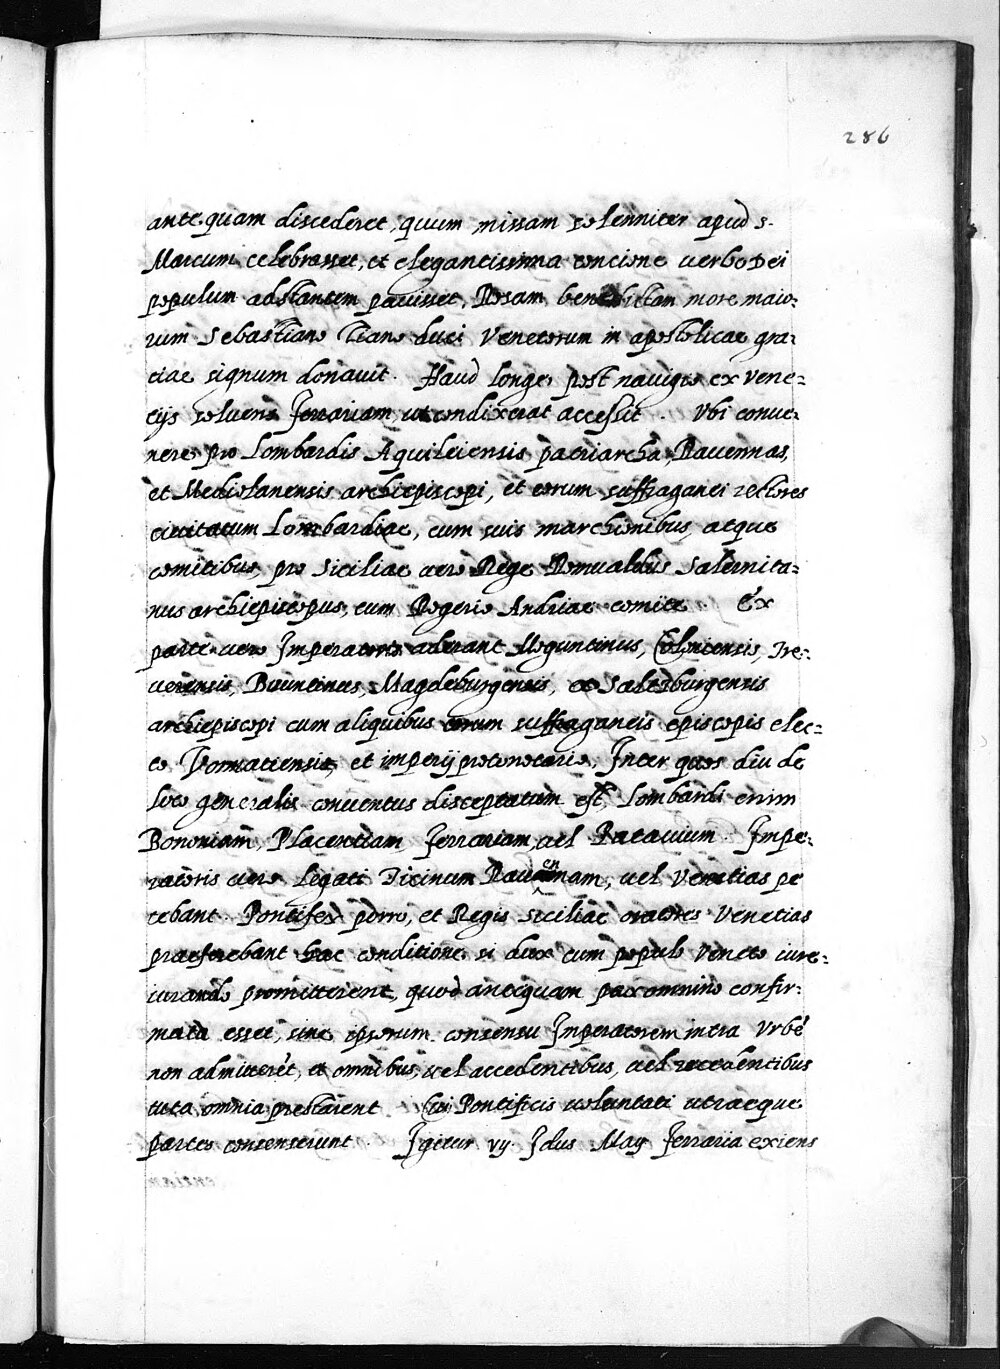 286
antequam discederet, quum missam solenniter apud s.
Marcum celebrasset, et elegantissima concione verbo Dei
populum adstantem pavisset, Rosam benedictam more maio=
rum Sebastiano Ciano duci Venetorum in apostolicae gra=
ciae signum donavit. Haud longe, post navigio ex Vene=
cijs solvens Ferrariam ut condixerat accessit. Vbi conve=
nere, pro Lombardis Aquileiensis patriarcha, Ravennas,
et Mediolanensis archiepiscopi, et eorum suffraganei rectores
civitatum Lombardiae, cum suis marchionibus, atque
comitibus, pro Siciliae vero Rege Romualdus Salernita=
nus archiepiscopus, cum Rogerio Andriae comite. Ex
parte vero Imperatoris aderant Moguntinus, Coloniensis, Tre=
verensis, Magdeburgensis, et Salesburgensis
archiepiscopi cum aliquibus eorum suffraganeis episcopis elec=
to Vormatiensis, et imperij protonotario, Inter quos diu de
loco generalis conventus disceptatum est, Lombardi enim
Bononiam, Placentiam Ferrariam, vel Patavium. Impe=
ratoris vero legati Ticinum Ravennam, vel Venetias pe
tebant. Pontifex porro, et Regis Siciliae oratores Venetias
praeferebant hac conditione, si dux cum populo Veneto iure=
iurando promitterent, quod antequam pax omnino confir=
mata esset, sine ipsorum consensu Imperatorem intra Vrbē
non admitterēt, et omnibus, vel accedentibus, vel recedentibus
tuta omnia prestarent. Cui Pontificis voluntati utraeque
partes consenserunt. Igitur vij Idus Maij Ferraria exiens